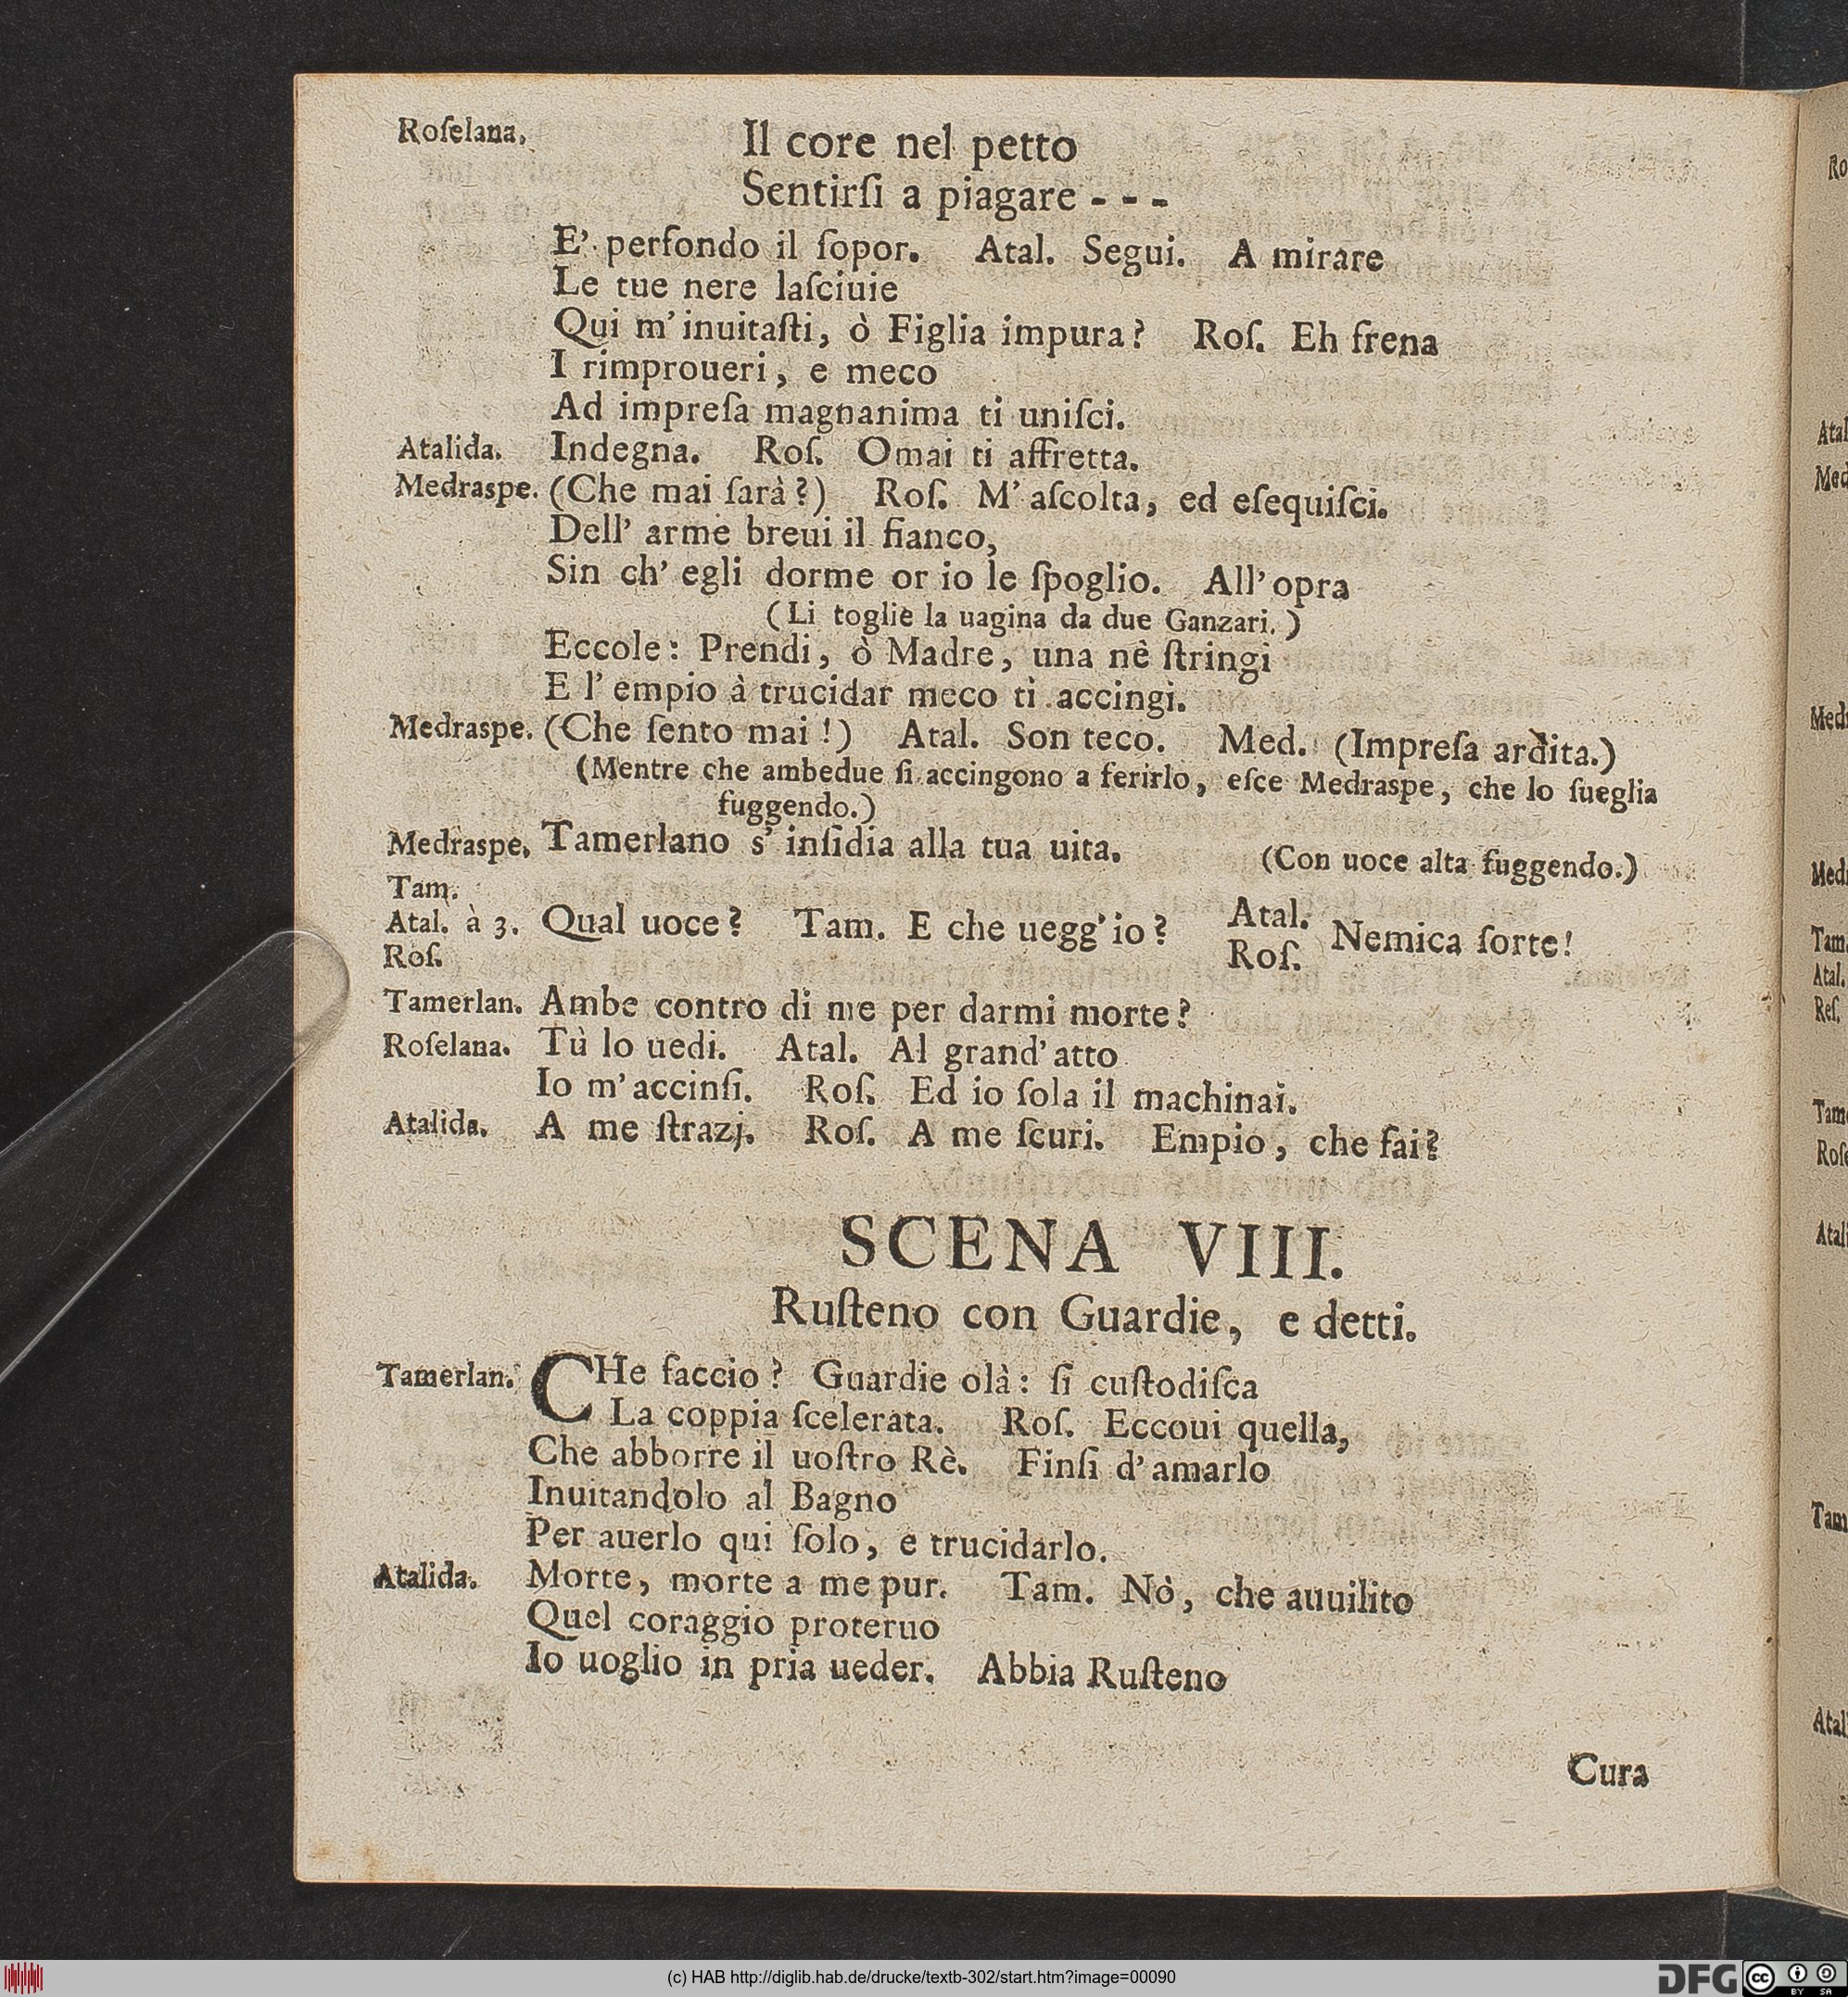 Roſelana. Il core nel petto
Sentirſi a piagare - - -
E' perfondo il ſopor. Atal. Segui. A mirare
Le tue nere laſciuie
Qui m'inuitaſti, ò Figlia impura? Roſ. Eh frena
I rimproueri, e meco
Ad impreſa magnanima ti uniſci.
Atalida. Indegna. Roſ. Omai ti affretta.
Medraspe. (Che mai ſarà?) Roſ. M'aſcolta, ed eſequiſci.
Dell' arme breui il fianco,
Sin ch' egli dorme or io le ſpoglio. All'opra
(Li toglie la uagina da due Ganzari.)
Eccole: Prendi, ò Madre, una nè ſtringi
E l' empio à trucidar meco ti accingi.
Medraspe. (Che ſento mai!) Atal. Son teco. Med. (Impreſa ardita.)
(Mentre che ambedue ſi accingono a ferirlo, eſce Medraspe, che lo ſueglia
fuggendo.)
Medraspe. Tamerlano s' inſidia alla tua uita. (Con uoce alta fuggendo.)
Tam.
Atal. à 3. Qual uoce? Tam. E che uegg'io? Atal. Nemica ſorte!
Roſ. Roſ.
Tamerlan. Ambe contro di me per darmi morte?
Roſelana. Tù lo uedi. Atal. Al grand'atto
Io m'accinſi. Roſ. Ed io ſola il machinai.
Atalida. A me ſtrazj. Roſ. A me ſcuri. Empio, che fai?
SCENA VIII.
Ruſteno con Guardie, e detti.
Tamerlan. CHe faccio? Guardie olà: ſi cuſtodiſca
La coppia ſcelerata. Roſ. Eccoui quella,
Che abborre il uoſtro Rè. Finſi d'amarlo
Inuitandolo al Bagno
Per auerlo qui ſolo, e trucidarlo.
Atalida. Morte, morte a me pur. Tam. Nò, che auuilito
Quel coraggio proteruo
Io uoglio in pria ueder. Abbia Ruſteno
Cura
Ro
Atal
Med
Medr
Medr
Tam.
Atal.
Roſ.
Tame
Roſe
Atali
Tam
Atal
(c) HAB http://diglib.hab.de/drucke/textb-302/start.htm?image=00090
DFG cc BY SA